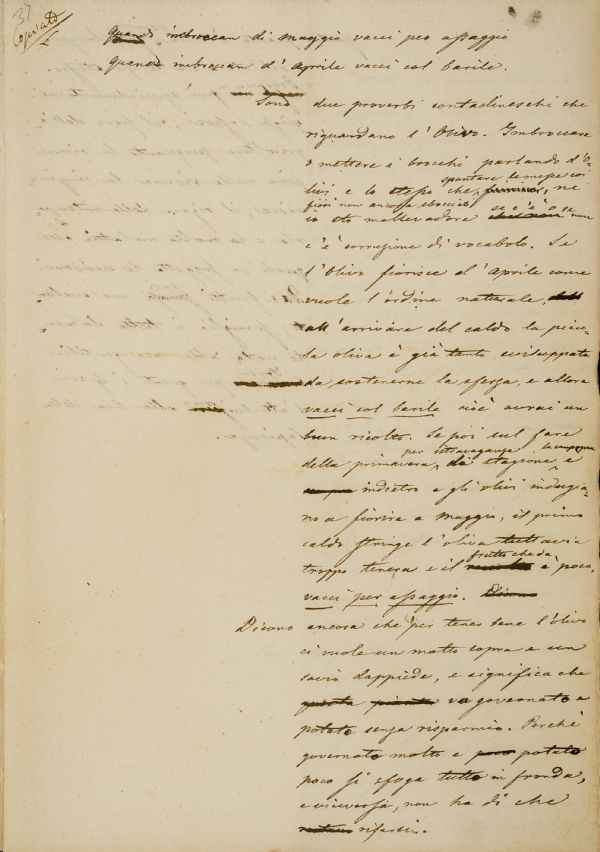 37
Copiato
Quando imbroccan di Maggio vacci per assaggio
quando imbroccan d'Aprile vacci col barile.
Sono due proverbi contadineschi che
riguardano l'Olivo. Imbroccare
o mettere i brocchi parlando d'O-
spuntare le mosse coi
livi e lo stesso che, ne
fiori non ancora sbocciati se c'è o se
io sto mallevadore non
c'è corruzione di vocabolo. Se
l'Olivo fiorisce d'Aprile come
vuole l'ordine naturale,
all'arrivare del caldo la picco-
la oliva è già tanto sviluppata
da sostenerne la sferza, e allora
vacci col barile cioè avrai un
buon ricolto. Se poi sul fare
per istravaganza la campagna
della primavera, di stagione e
indietro e gli olivi indugia-
no a fiorire a Maggio, il primo
caldo stringe l'oliva tuttavia
frutto che da
troppo tenera e il è poco,
vacci per assaggio.
Dicono ancora che per tener bene l'Olivo
ci vuole un matto sopra e un
savio dappiede, e significa che
questa pianta va governato e
potato senza risparmio. Perchè
governato molto e poco potato
poco si sfoga tutto in fronda,
e viceversa, non ha di che
rifarsi.